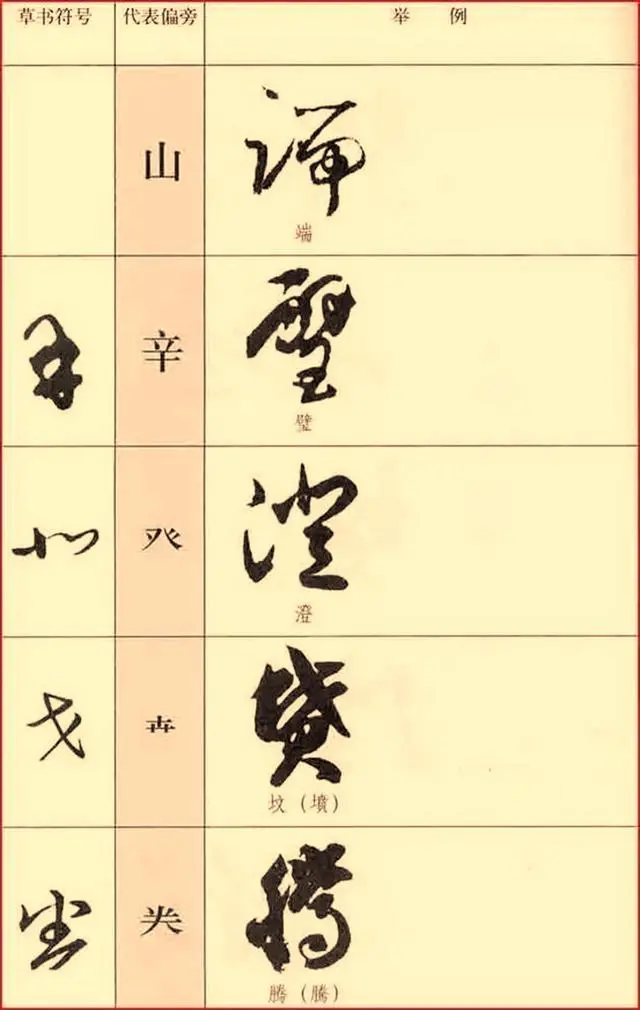 草书符号 代表偏旁 举例
山
端
辛
璧
癶
澄
卉
坟（墳）
龹
腾（騰）